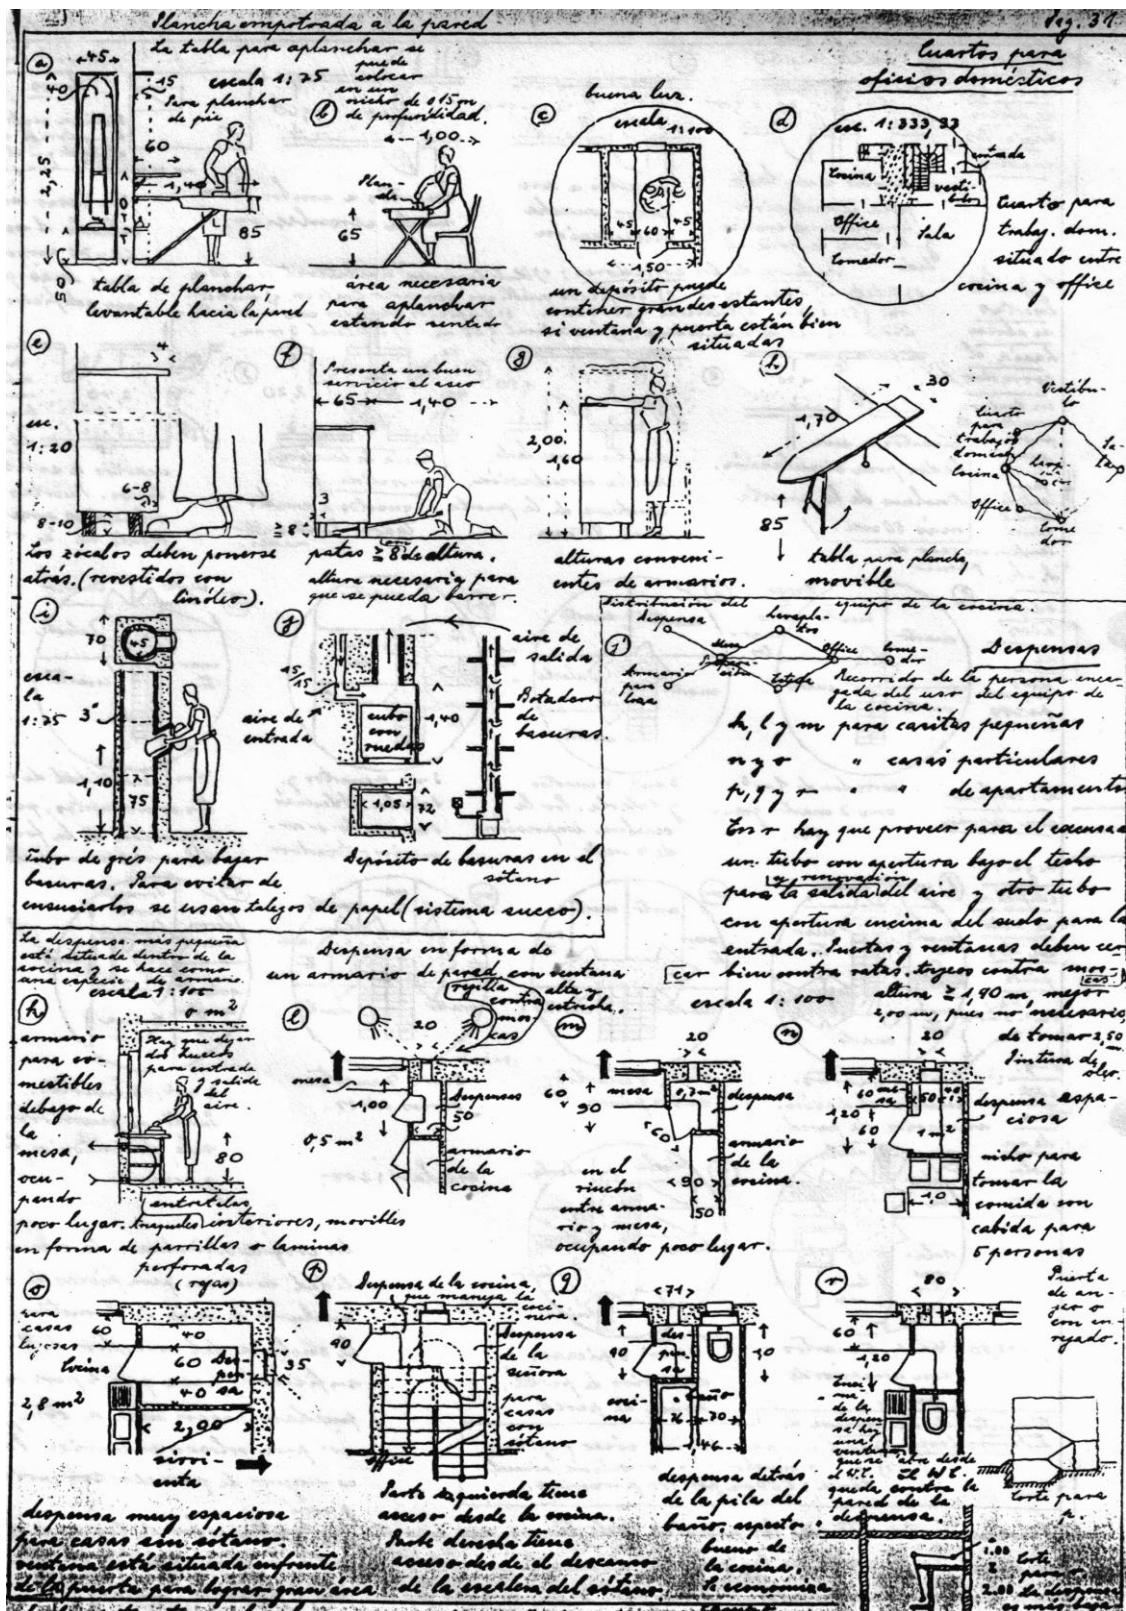 Plancha empotrada a la pared
Pag. 31
Cuartos para
oficios domésticos
a
45
40
2,25
05
15
60
1,40
85
La tabla para aplanchar se
puede
colocar
en un
nicho de 0,15 m
de profundidad.
escala 1:25
Para planchar
de pie
tabla de planchar,
levantable hacia la pared
b
1,00
Plancha
65
área necesaria
para aplanchar
estando sentado
c
buena luz.
escala 1:100
45 60 45
1,50
un depósito puede
contener grandes estantes,
si ventana y puerta están bien
situadas
d
esc. 1:333,33
Cocina
entrada
vestíbulo
Office
Sala
Comedor
Cuarto para
trabaj. dom.
situado entre
cocina y office
e
4
esc.
1:20
6-8
8-10
Los zócalos deben ponerse
atrás. (revestidos con
linóleo).
f
Presenta un buen
servicio al aseo
65 1,40
3
≥8
patas ≥ 8 de altura.
altura necesaria para
que se pueda barrer.
g
2,00
1,60
alturas conveni-
entes de armarios.
h
1,70
30
85
tabla para plancha,
movible
Vestíbu-
lo
Cuarto
para
trabajos
domést.
Cocina
Sa-
la
Office
Come
dor
i
70
45
esca-
la
1:25
3"
1,10
75
Tubo de grés para bajar
basuras. Para evitar de
ensuciarlos se usan talegos de papel (sistema succo).
j
15/15
aire de
entrada
cubo
con
ruedas
1,40
1,05
72
aire de
salida
Botadero
de
basuras.
Depósito de basuras en el
sótano
distribución del equipo de la cocina.
j'
despensa
Lavapla-
tos
Office
Come-
dor
Armario
para
Estufa
Despensas
Recorrido de la persona encar-
gada del uso del equipo de
la cocina.
k, l y m para casitas pequeñas
n y o " casas particulares
p, q y r " " de apartamentos
En r hay que proveer para el excusado
un tubo con apertura bajo el techo
para la salida y renovación del aire y otro tubo
con apertura encima del suelo para la
entrada. Puertas y ventanas deben cer-
car bien contra ratas. tejidos contra mos-
cas
escala 1:100
altura ≥ 1,90 m, mejor
2,00 m, pues no necesario,
de tomar 2,50
Pintura de
óleo.
La despensa más pequeña
está situada dentro de la
cocina y se hace como
una especie de armario.
escala 1:100
0 m²
k
armario
para co-
mestibles
debajo de
la
mesa,
ocu-
pando
poco lugar.
Hay que dejar
dos huecos
para entrada
y salida
del
aire.
80
entretelas
interiores, movibles
en forma de parrillas o laminas
perforadas
(rejas)
Despensa en forma de
un armario de pared con ventana
alta y
estrecha.
rejilla
contra
mos-
cas
l
20
mesa
1,00
0,5 m²
Despensas
50
armario
de la
cocina
m
20
60
90
mesa
0,3 m²
despensa
60
90
50
armario
de la
cocina.
en el
rincón
entre arma-
rio y mesa,
ocupando poco lugar.
n
20
60
1,20
60
me-
sa
50
40
1 m²
1,0
despensa espa-
ciosa
nicho para
tomar la
comida con
cabida para
5 personas
o
para
casas
lujosas
60
Cocina
2,8 m²
40
60
40
Des-
pen-
sa
35
2,00
sirvi-
enta
despensa muy espaciosa
para casas sin sótano.
ventana está situada enfrente
de la puerta para lograr gran área
p
Despensa de la cocina
que maneja la
coci-
nera.
90
Despensa
de la
señora
para
casas
con
sótano
office
Parte izquierda tiene
acceso desde la cocina.
Parte derecha tiene
acceso desde el descanso
de la escalera del sótano.
q
71
90
des-
pen-
sa
90
coci-
na
baño
76 70
1,46
despensa detrás
de la pila del
baño. aspecto
bueno de
la cocina.
Se economiza
r
80
60
1,20
Enci-
ma
de la
despen-
sa hay
una
ventana
que se abre desde
el W.C. El W.C.
queda contra la
pared de la
despensa.
Puerta
de an-
jeo o
con en-
rejado.
Corte para
p.
1.00
2
2.00
Corte
para r.
La despensa
es más baja